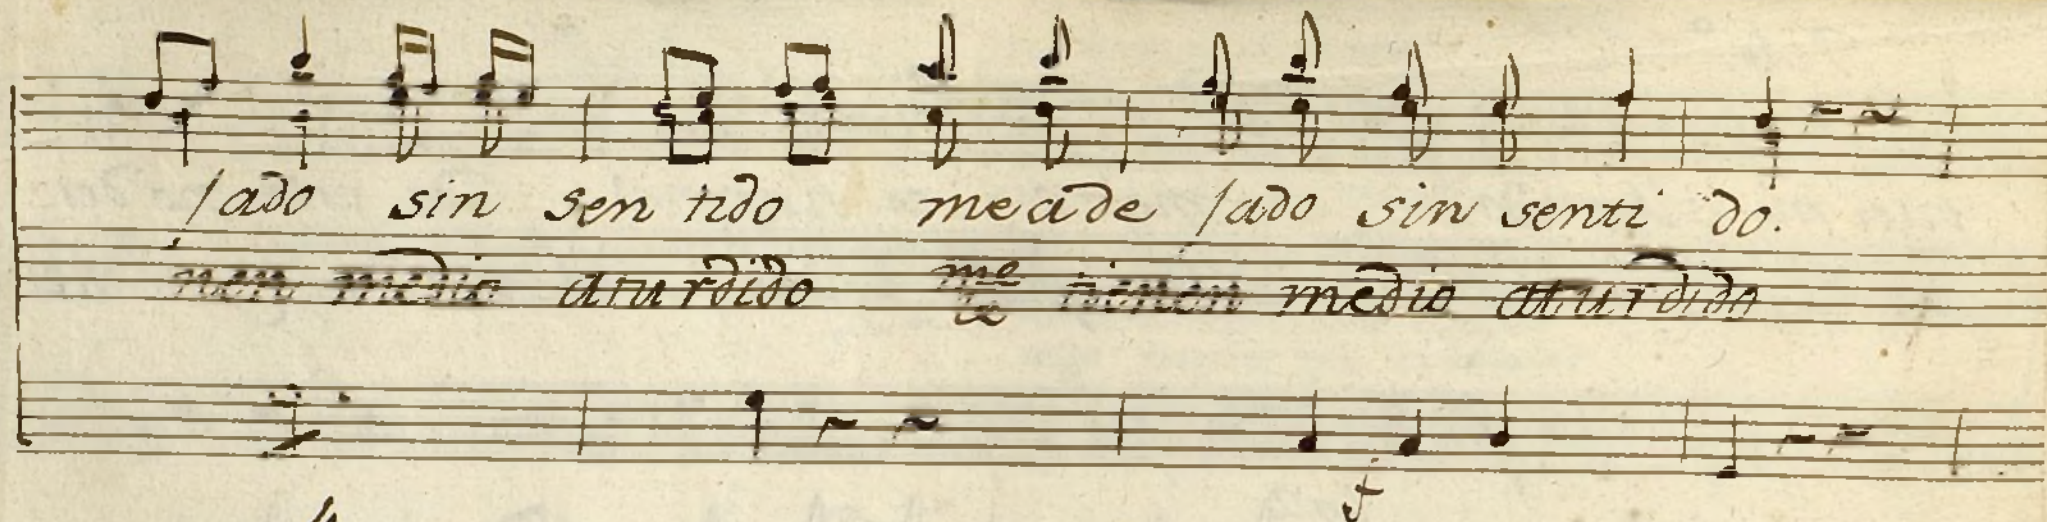 jado sin sen tido meade jado sin senti do.
nen medio aturdido me tienen medio aturdido
f